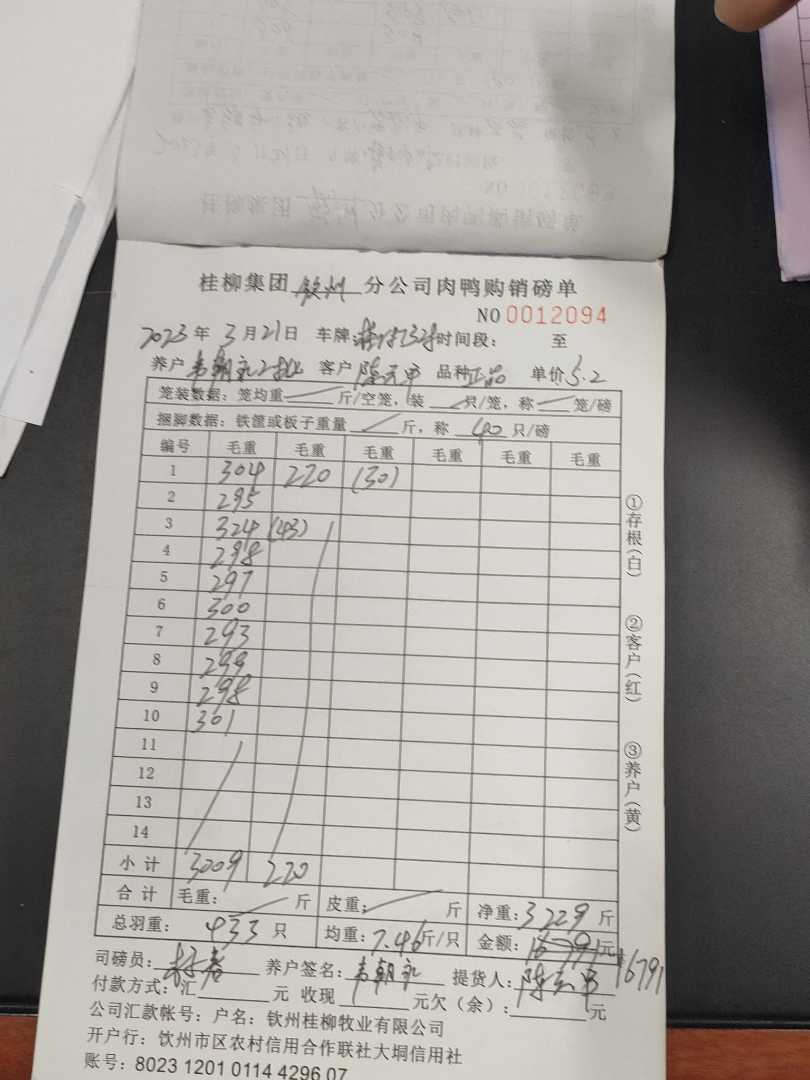 桂柳集团 钦州 分公司肉鸭购销磅单
NO 0012094
2023年 3月21日 车牌: 时间段: 至
养户 韦朝礼 客户 陈云甲 品种 正品 单价 5.2
笼装数据: 笼均重 斤/空笼, 装 只/笼, 称 笼/磅
捆脚数据: 铁筐或板子重量 斤, 称 40 只/磅
编号 毛重 毛重 毛重 毛重 毛重 毛重
1 304 220 (30)
2 295
3 324 (43)
4 298
5 297
6 300
7 293
8 299
9 298
10 301
11
12
13
14
小计 3009 220
合计 毛重: 斤 皮重: 斤 净重: 3229 斤
总羽重: 433 只 均重: 7.46 斤/只 金额: 元 16791
司磅员: 养户签名: 韦朝礼 提货人: 陈云甲
付款方式: 汇 元 收现 元欠(余): 元
公司汇款帐号: 户名: 钦州桂柳牧业有限公司
开户行: 钦州市区农村信用合作联社大垌信用社
账号: 8023 1201 0114 4296 07
①存根(白)
②客户(红)
③养户(黄)